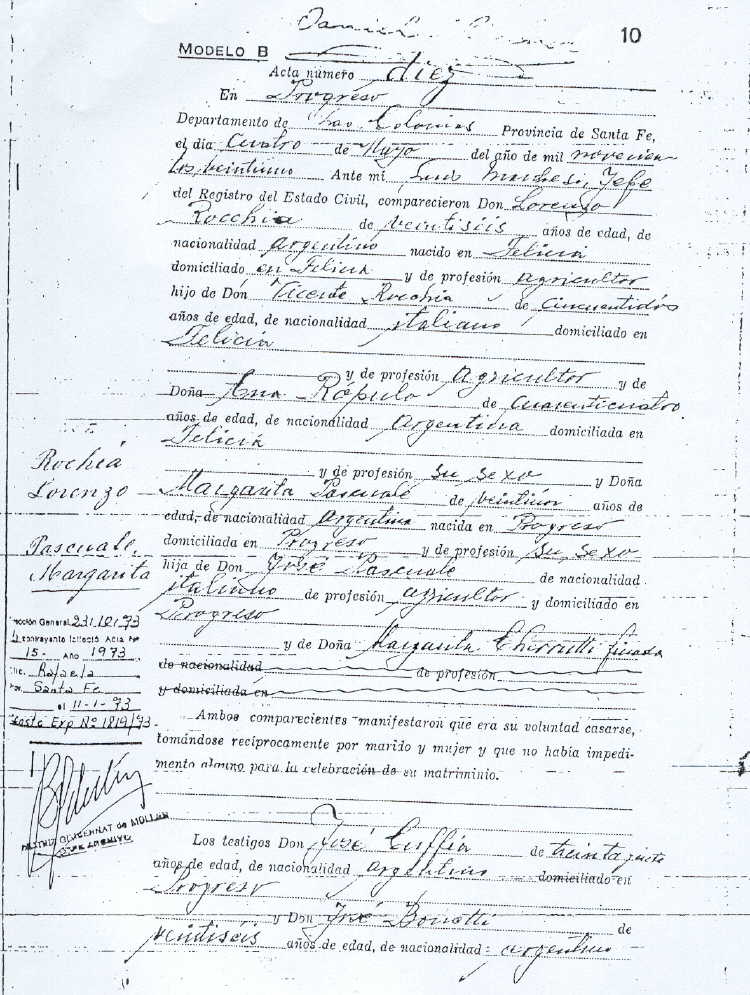 10
MODELO B
Acta número diez
En Progreso
Departamento de Las Colonias Provincia de Santa Fe,
el día Cuatro de Mayo del año de mil novecien
tos veintiuno Ante mí, Luis Jefe
del Registro del Estado Civil, comparecieron Don Lorenzo
Rocchia de veintiséis años de edad, de
nacionalidad argentino nacido en Felicia
domiciliado en Felicia y de profesión agricultor
hijo de Don Vicente Rocchia de cincuentidós
años de edad, de nacionalidad italiano domiciliado en
Felicia
y de profesión Agricultor y de
Doña Ana Rópulo de cuarenticuatro
años de edad, de nacionalidad Argentina domiciliada en
Felicia
y de profesión su sexo y Doña
Margarita Pascuale de veintiun años de
edad, de nacionalidad Argentina nacida en Progreso
domiciliada en Progreso y de profesión su sexo
hija de Don José Pascuale de nacionalidad
italiano de profesión agricultor y domiciliado en
Progreso
y de Doña Margarita Cherrutti finada
de nacionalidad de profesión
y domiciliada en
Ambos comparecientes manifestaron que era su voluntad casarse,
tomándose recíprocamente por marido y mujer y que no había impedi-
mento alguno para la celebración de su matrimonio.
Los testigos Don José Cuffia de treinta
años de edad, de nacionalidad argentino domiciliado en
Progreso
y Don José Bonatti de
veintiséis años de edad, de nacionalidad: argentino
Rochiá
Lorenzo
Pascuale,
Margarita
General 231.10.93
contrayente Acta Nº
15- Año 1973
Rafaela
Santa Fe
el 11-1-93
Exp Nº 1819/93-